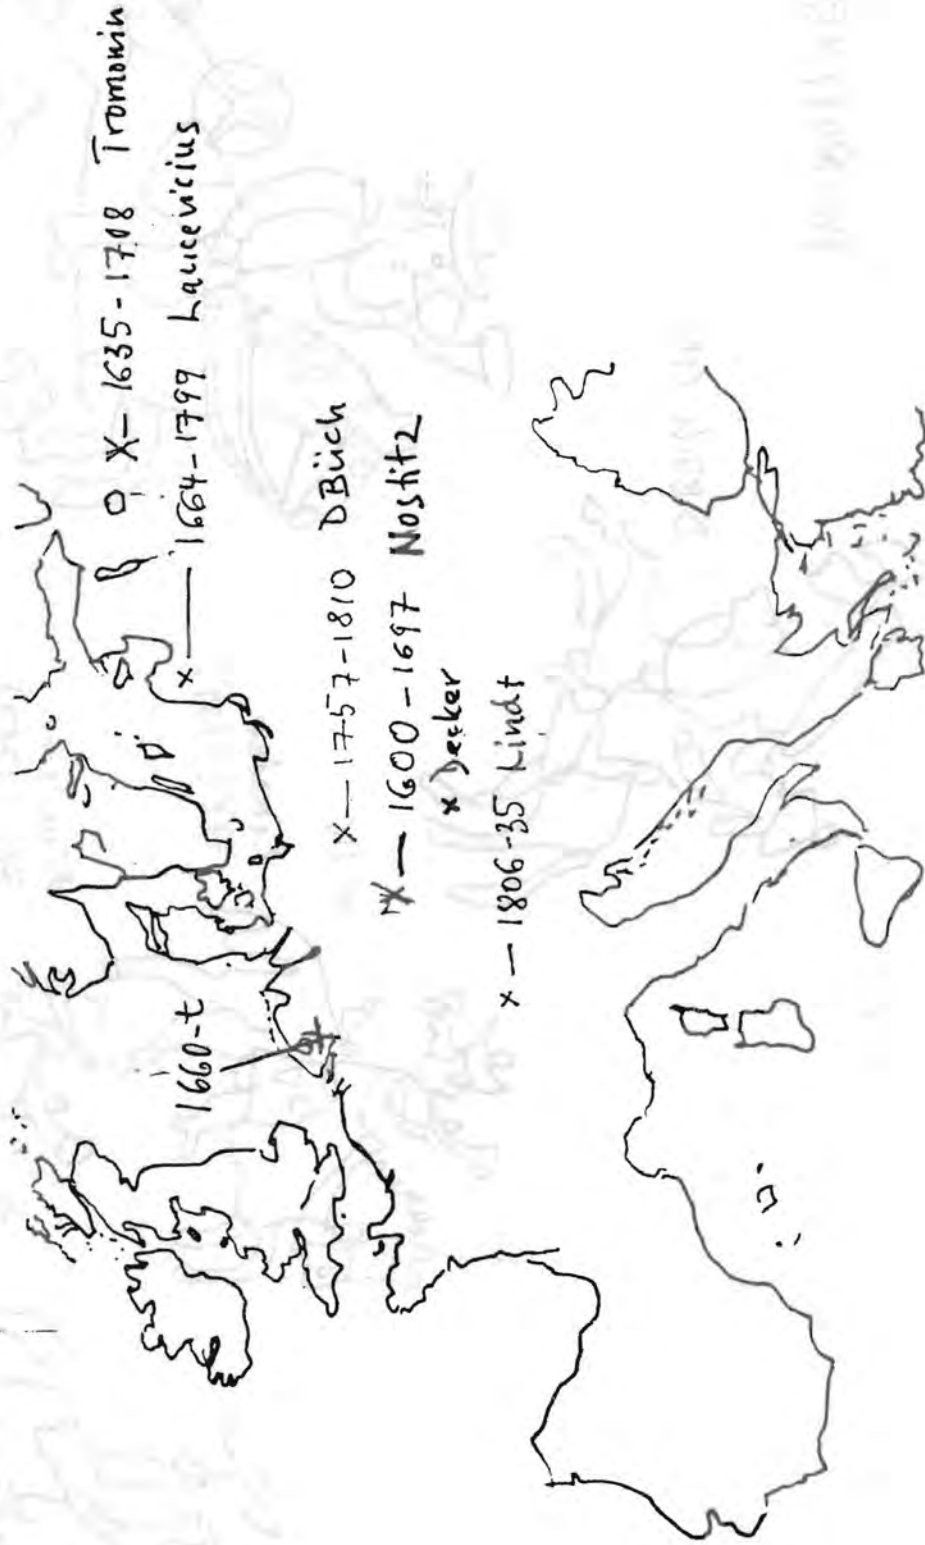 X— 1635 - 1708 Tromonin
x — 1664 - 1799 Laucevicius
x — 1757 - 1810 DBüch
X — 1600 - 1697 Nostitz
x Decker
x — 1806 - 35 Lindt
1660-t